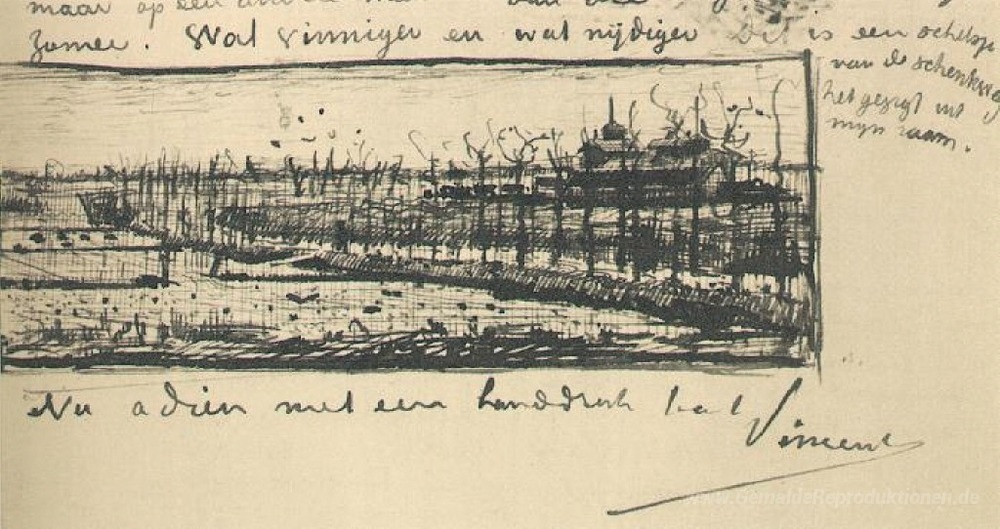 maar op een
zomer. Wat vinniger en wat nijdiger Dit is een schetsje
van de schenkweg
het gezigt uit
mijn raam.
Nu adieu met een handdruk t.à t.
Vincent
www.GemaldeReproduktionen.de